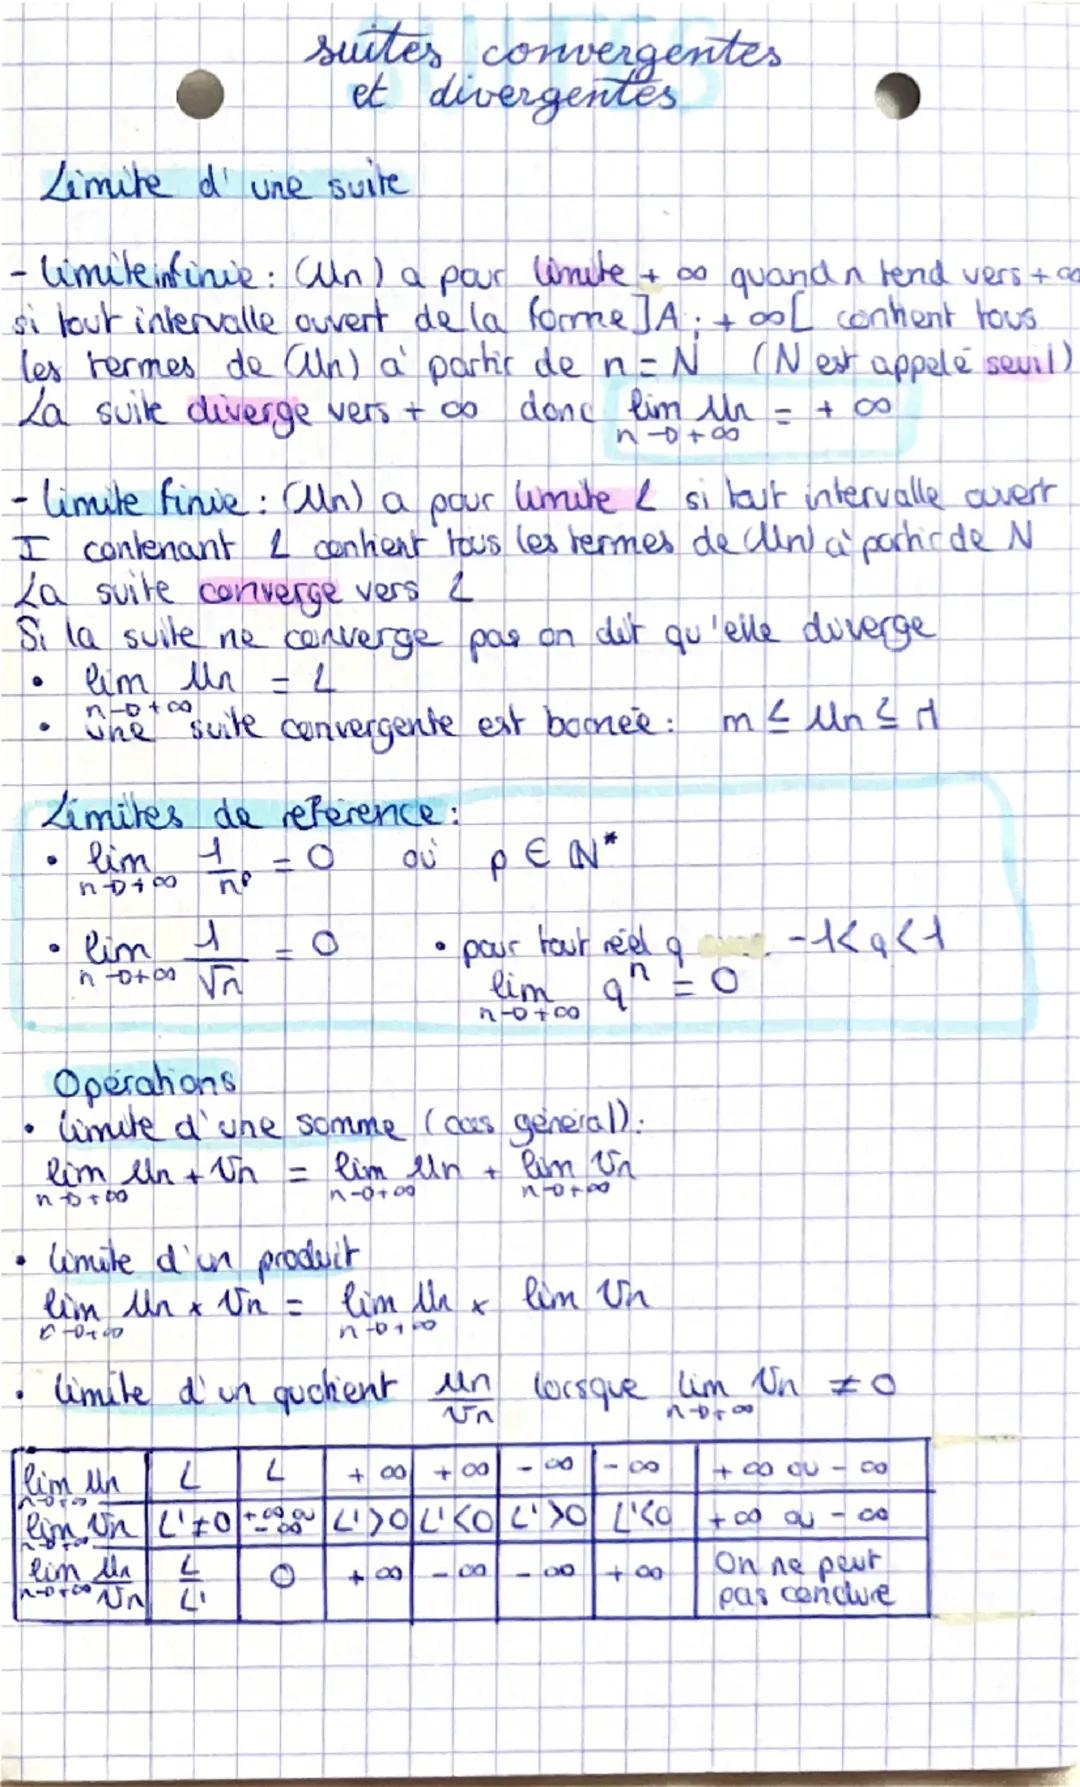 suites convergentes
et divergentes
Limite d'une suite
- limite infinie : (Un) a pour limite + ∞ quand n tend vers + ∞
si tout intervalle ouvert de la forme ]A ; + ∞[ contient tous
les termes de (Un) à partir de n = N (N est appelé seuil)
La suite diverge vers + ∞ donc lim Un = + ∞
n→+∞
- limite finie : (Un) a pour limite L si tout intervalle ouvert
I contenant L contient tous les termes de (Un) à partir de N
La suite converge vers L
Si la suite ne converge pas on dit qu'elle diverge
• lim Un = L
n→+∞
• une suite convergente est bornée : m ≤ Un ≤ M
Limites de référence :
• lim 1/nᵖ = 0 où p ∈ ℕ*
n→+∞
• lim 1/√n = 0 • pour tout réel q -1<q<1
n→+∞ lim qⁿ = 0
n→+∞
Opérations
• limite d'une somme (cas général) :
lim Un + Vn = lim Un + lim Vn
n→+∞ n→+∞ n→+∞
• limite d'un produit
lim Un × Vn = lim Un × lim Vn
n→+∞ n→+∞
• limite d'un quotient Un/Vn lorsque lim Vn ≠ 0
n→+∞
lim Un L L + ∞ + ∞ - ∞ - ∞ + ∞ ou - ∞
n→+∞
lim Vn L'≠0 +∞ ou -∞ L'>0 L'<0 L'>0 L'<0 + ∞ ou - ∞
n→+∞
lim Un/Vn L/L' 0 + ∞ - ∞ - ∞ + ∞ On ne peut
n→+∞ pas conclure